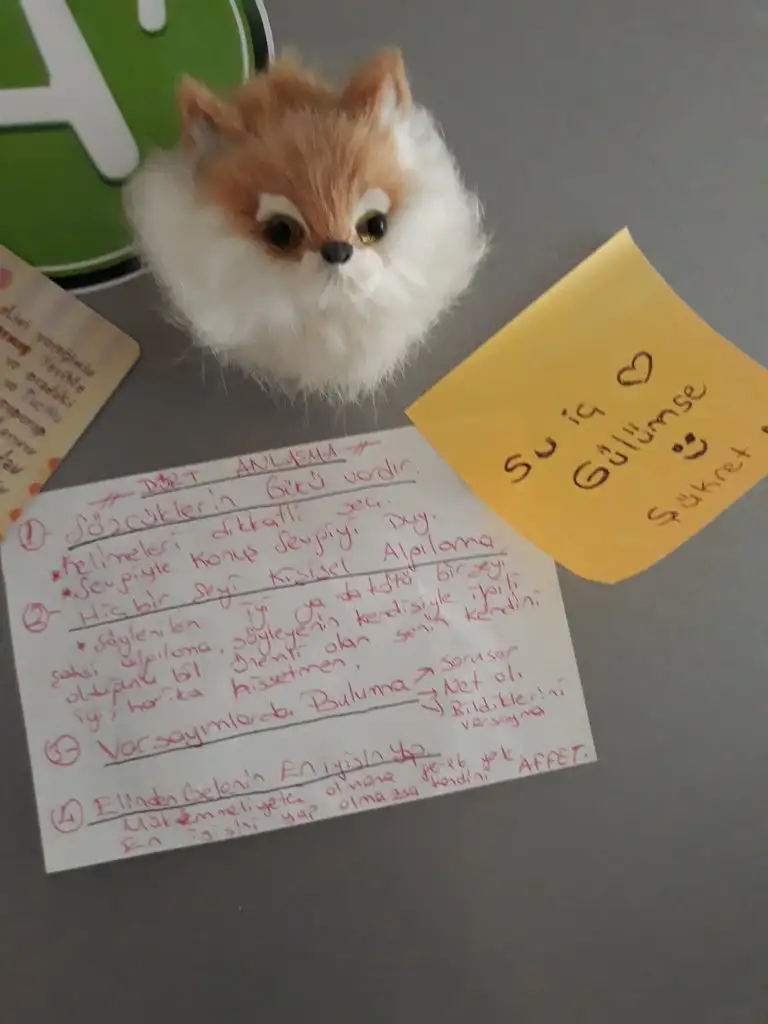 A
DÖRT ANLAŞMA
1- Sözcüklerin Gücü vardır.
* Kelimeleri dikkatli seç.
* Sevgiyle Konuş Sevgiyi Duy.
2- Hiç bir şeyi Kişisel Algılama
* Söylenilen iyi ya da kötü bir şeyi
şahsi algılama, söyleyenin kendisiyle ilgili
olduğunu bil önemli olan senin kendini
iyi, harika hissetmen.
3- Varsayımlarda Bulunma → Sorular sor
→ Net ol.
→ Bildiklerini
varsayma
4 Elinden Gelenin En iyisini yap.
Mükemmeliyetçi olmana gerek yok
En iyisini yap olmazsa kendini AFFET.
Su iç ♡
Gülümse
Şükret